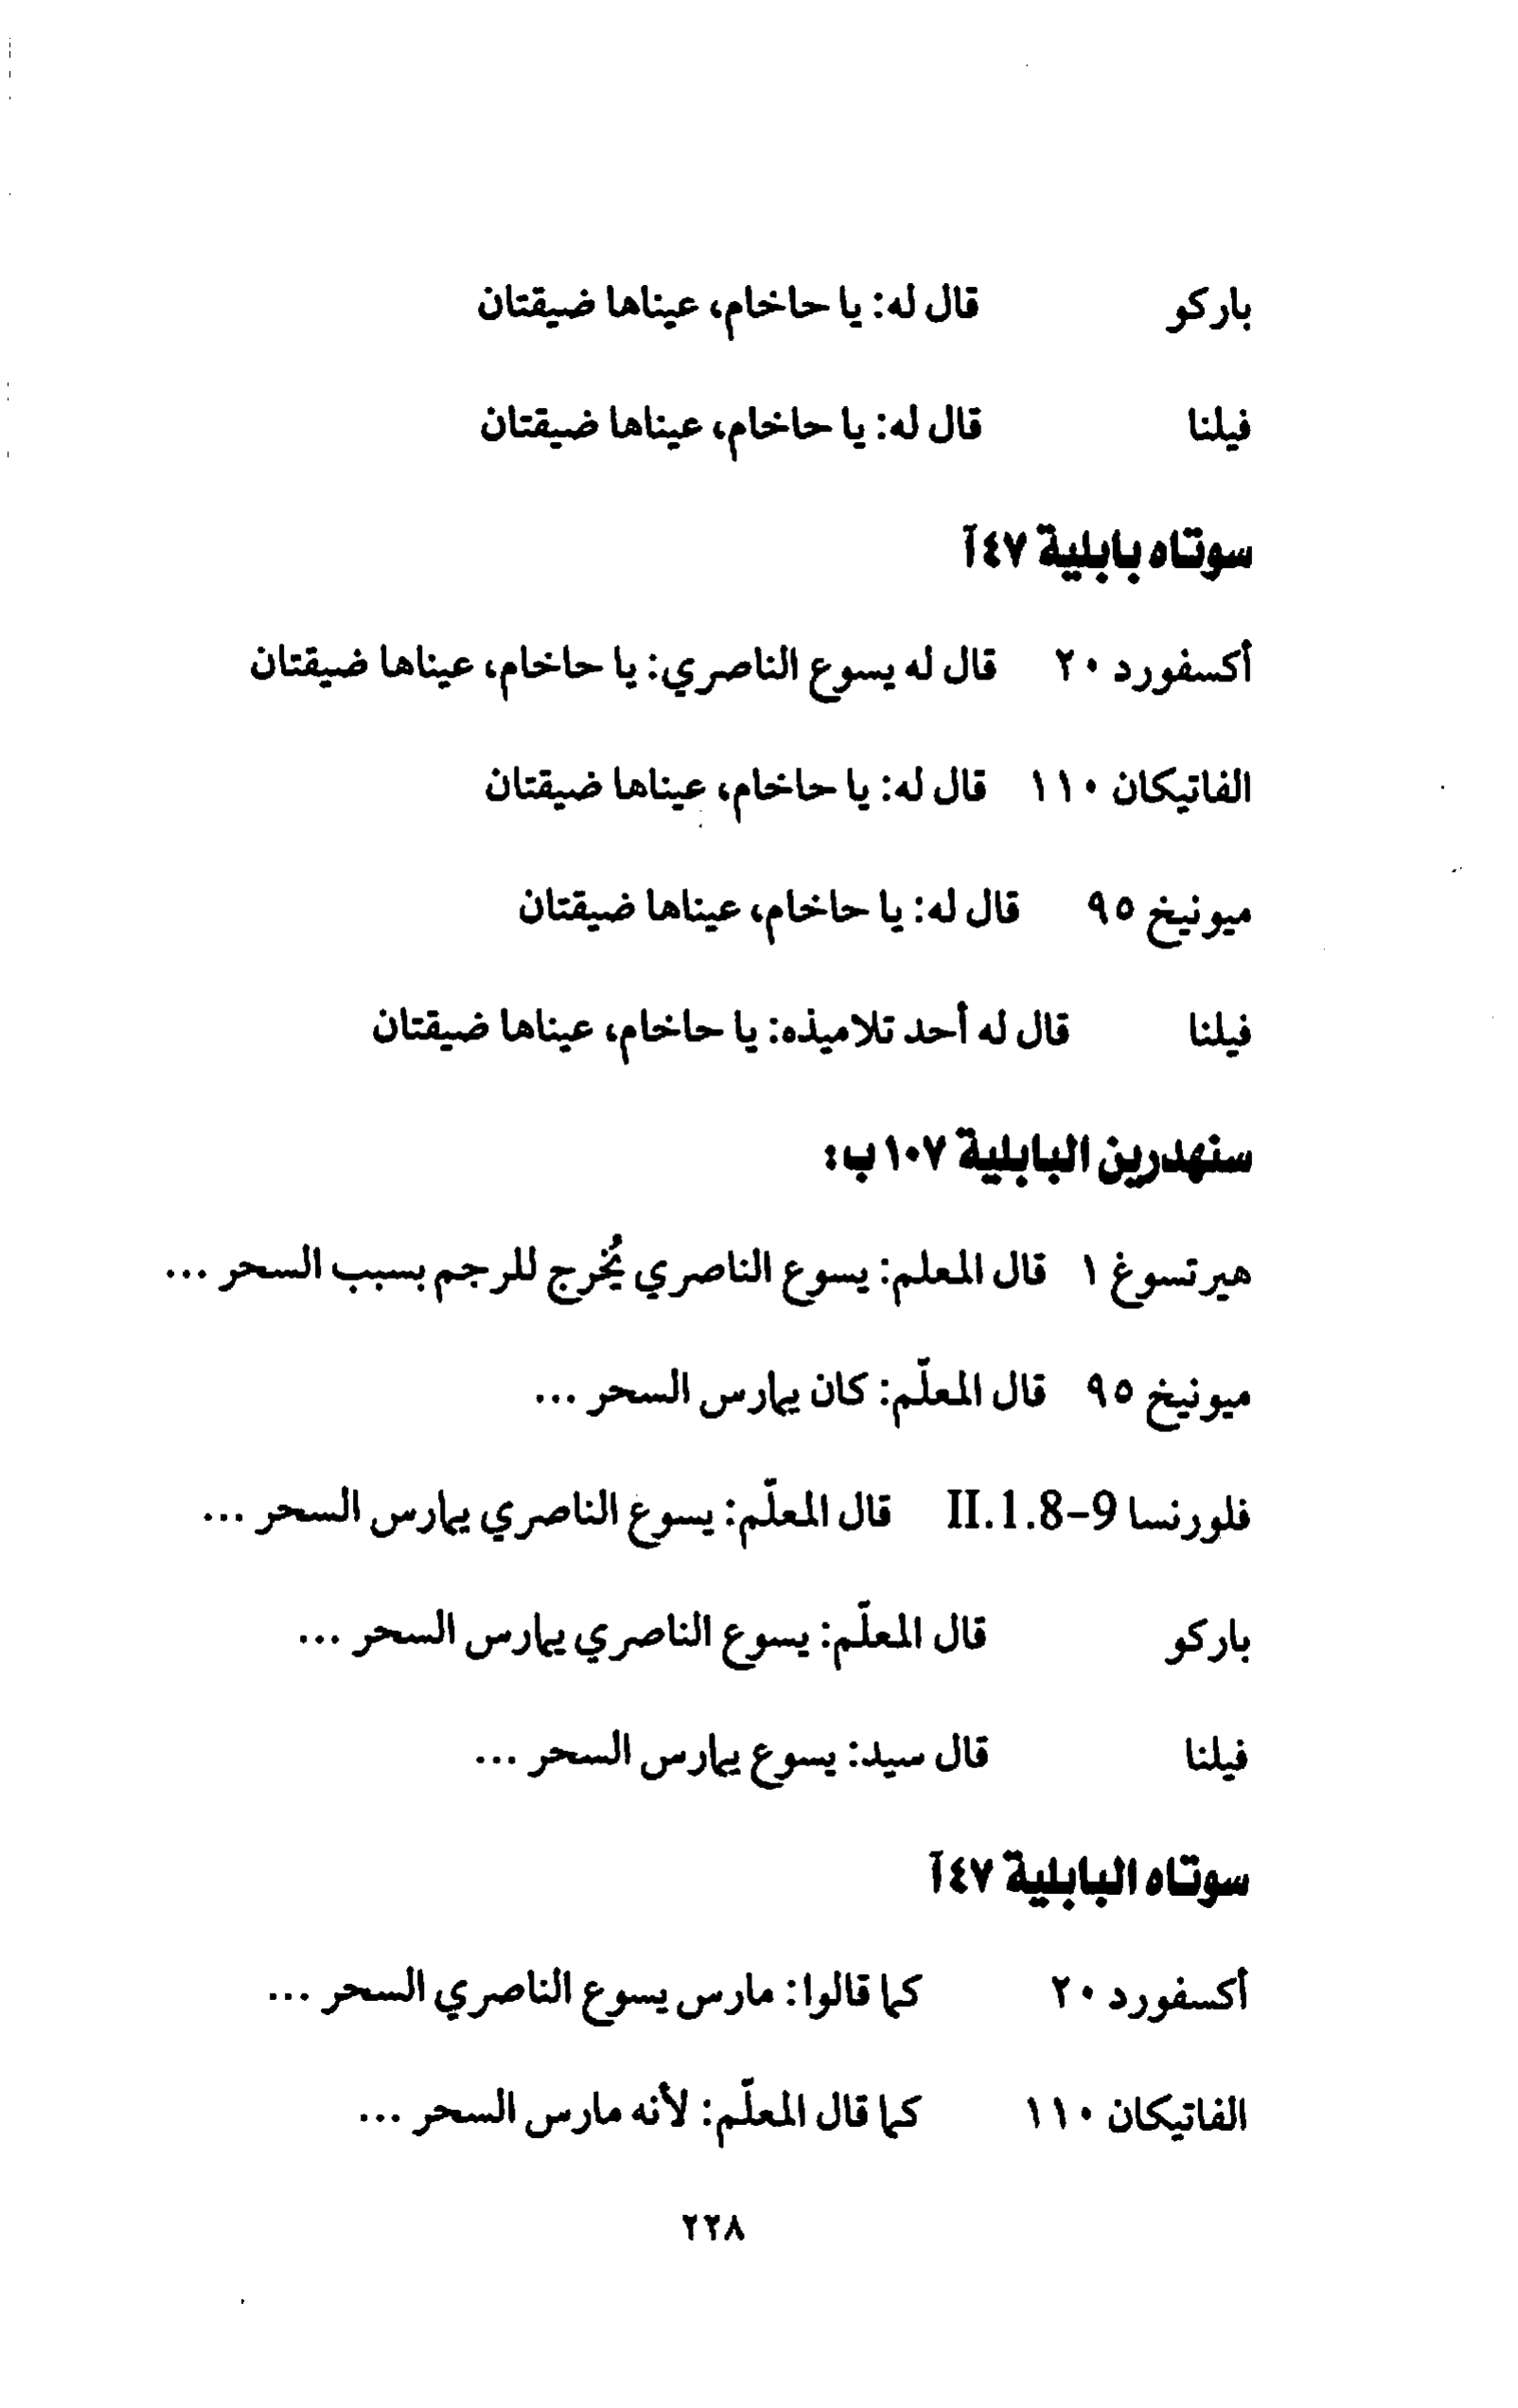 باركو قال له: يا حاخام، عيناها ضيقتان
فيلنا قال له: يا حاخام، عيناها ضيقتان
سوتاه بابلية ٤٧آ
أكسفورد ٢٠ قال له يسوع الناصري: يا حاخام، عيناها ضيقتان
الفاتيكان ١١٠ قال له: يا حاخام، عيناها ضيقتان
ميونيخ ٩٥ قال له: يا حاخام، عيناها ضيقتان
فيلنا قال له أحد تلاميذه: يا حاخام، عيناها ضيقتان
سنهدرين البابلية ١٠٧ب:
هيرتسوغ ١ قال المعلم: يسوع الناصري يُخرج للرجم بسبب السحر ...
ميونيخ ٩٥ قال المعلّم: كان يمارس السحر ...
فلورنسا II.1.8-9 قال المعلّم: يسوع الناصري يمارس السحر ...
باركو قال المعلّم: يسوع الناصري يمارس السحر ...
فيلنا قال سيد: يسوع يمارس السحر ...
سوتاه البابلية ٤٧آ
أكسفورد ٢٠ كما قالوا: مارس يسوع الناصري السحر ...
الفاتيكان ١١٠ كما قال المعلّم: لأنه مارس السحر ...
٢٢٨